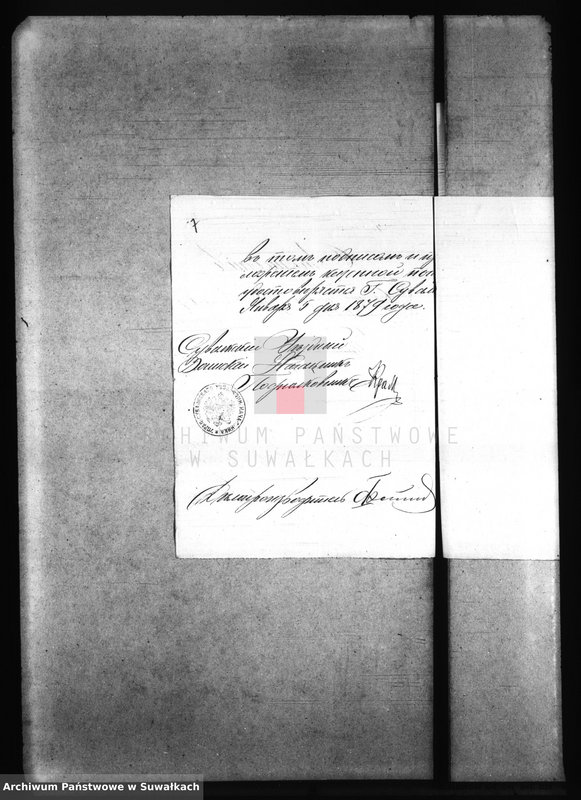 7
въ томъ подписомъ и пр
ложеніемъ казенной печ
удостовѣряется Г. Сувал
Январь 5 дня 1879 года.
Сувалкскій Уѣздный
Воинскій Начальникъ
Подполковникъ
ARCHIWUM PAŃSTWOWE
W SUWAŁKACH
Дѣлопроизводитель
Archiwum Państwowe w Suwałkach